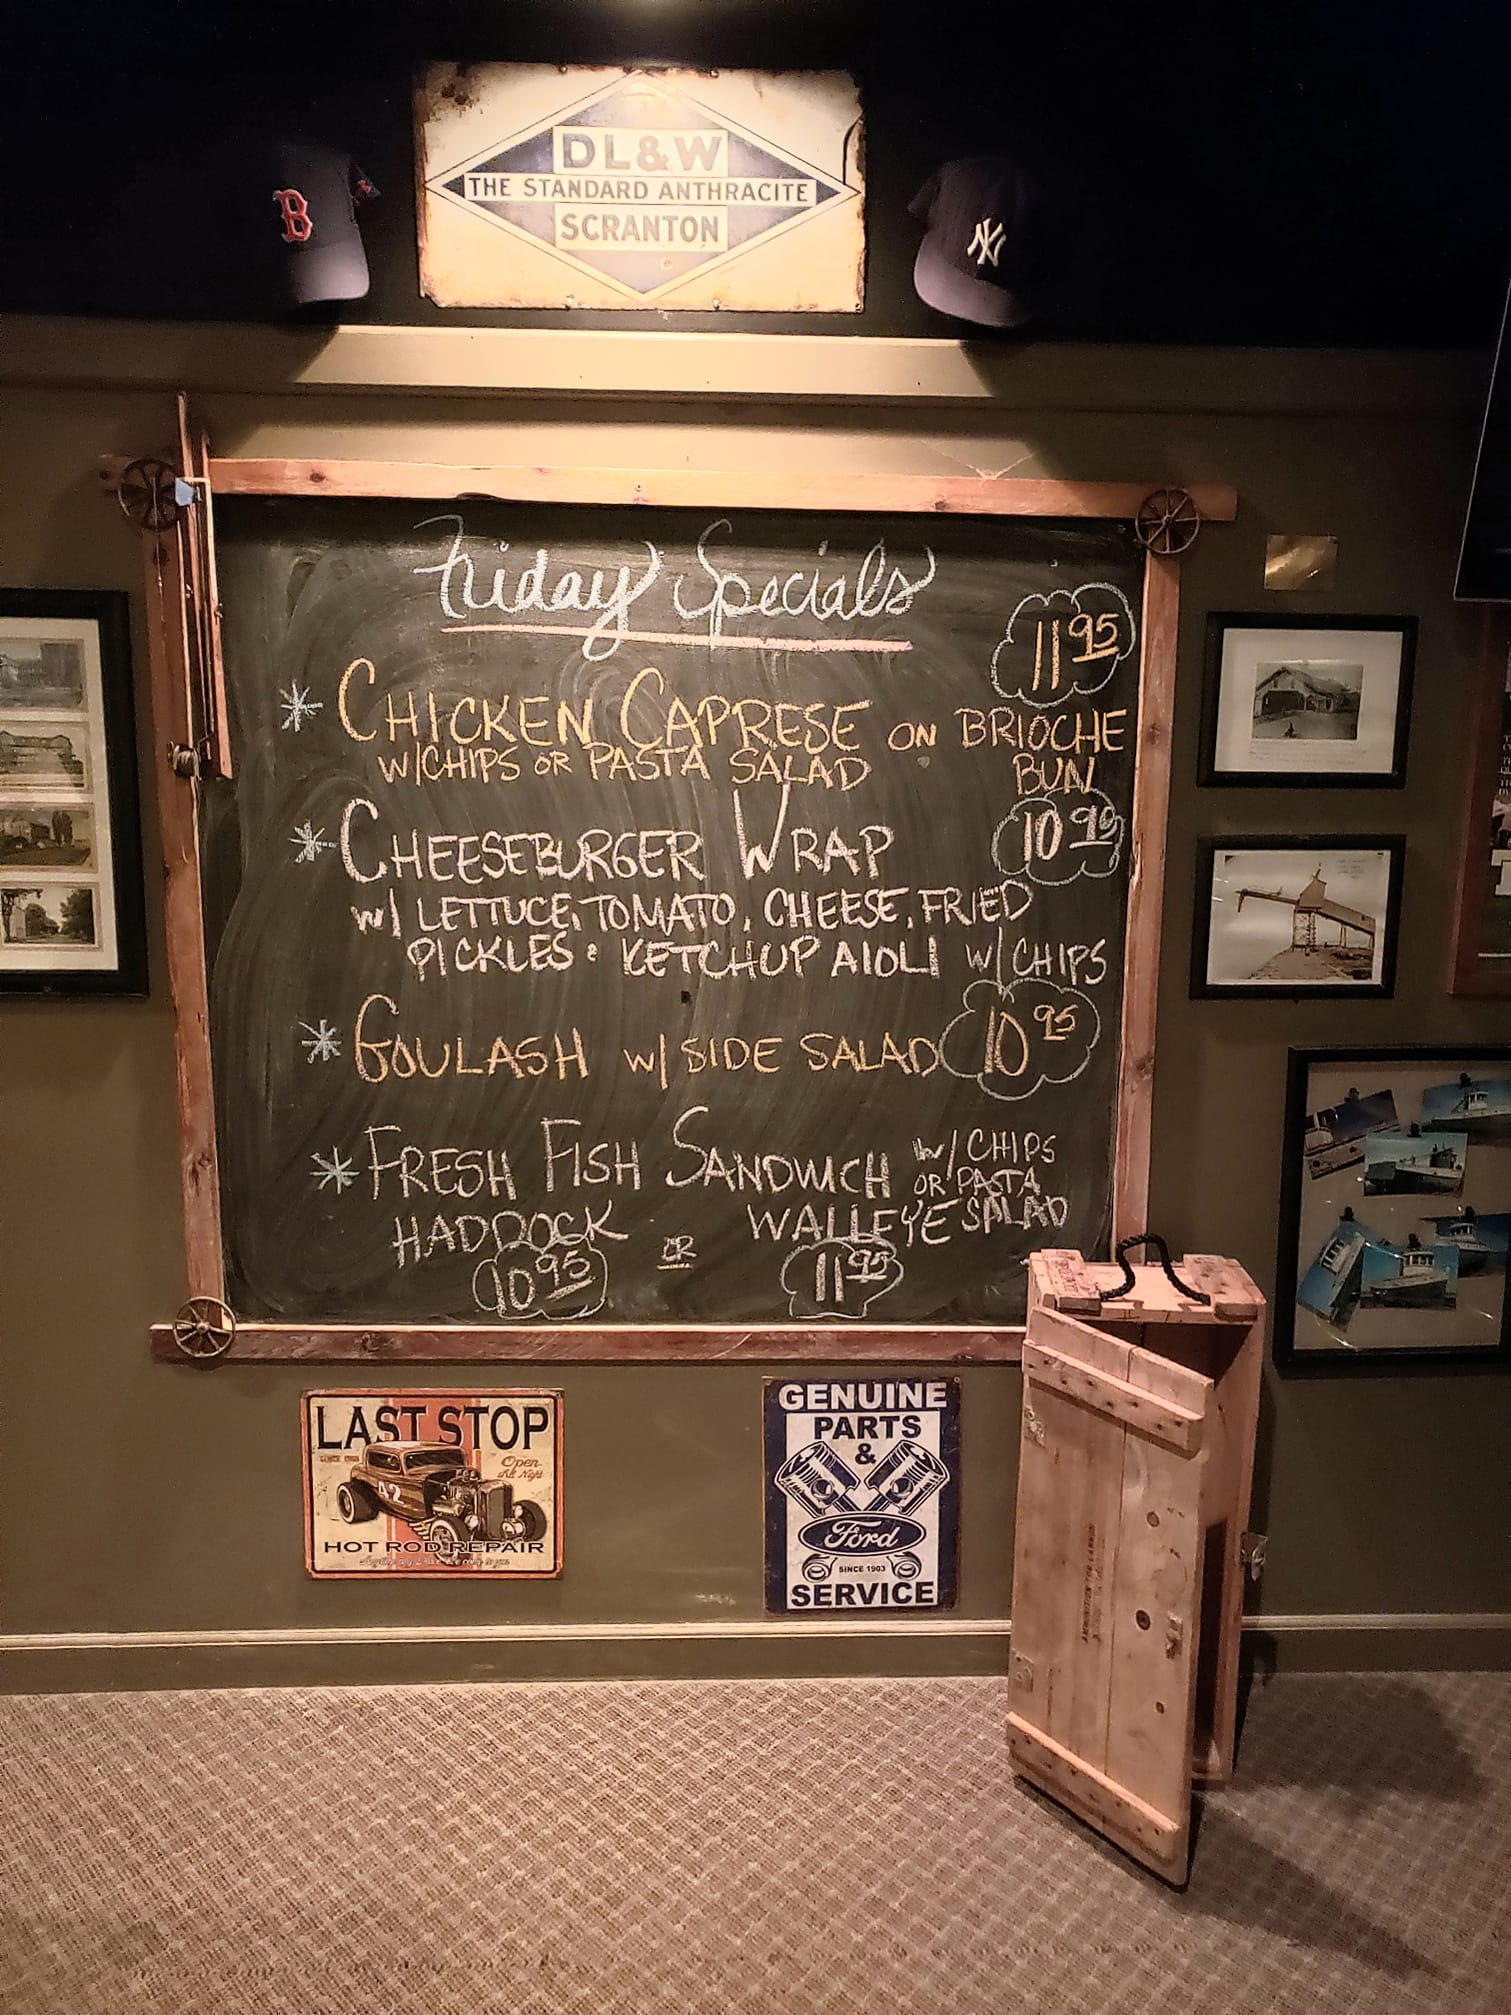 DL&W
THE STANDARD ANTHRACITE
SCRANTON
B
NY
Friday Specials
11 95
* CHICKEN CAPRESE ON BRIOCHE
W/CHIPS OR PASTA SALAD BUN
* CHEESEBURGER WRAP 10 95
W/ LETTUCE, TOMATO, CHEESE, FRIED
PICKLES & KETCHUP AIOLI W/CHIPS
* GOULASH W/ SIDE SALAD 10 95
* FRESH FISH SANDWICH W/ CHIPS
OR PASTA
HADDOCK OR WALLEYE SALAD
10 95 11 95
LAST STOP
Open
All Night
42
HOT ROD REPAIR
GENUINE
PARTS
&
Ford
SINCE 1903
SERVICE